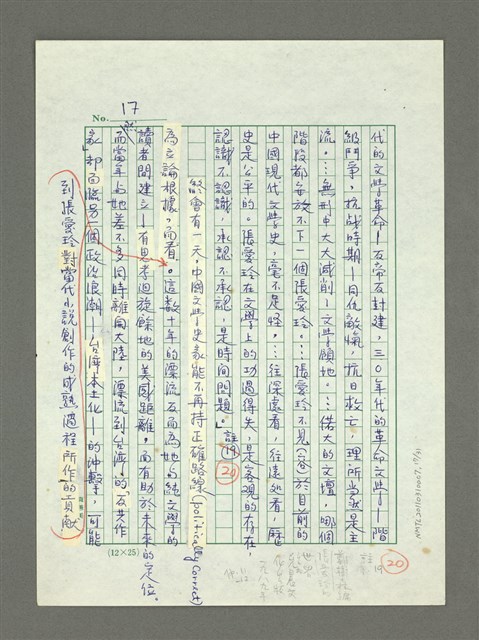 No. 17
代的文學革命—反帝反封建,三〇年代的革命文學—階
級鬥爭,抗戰時期—同仇敵愾,抗日救亡,理所當然是主
流。…無形中大大減削了文學領地。…偌大的文壇,哪個
階段都安放不下一個張愛玲。…張愛玲不見(容)於目前的
中國現代文學史,毫不足怪。…往深處看,往遠處看,歷
史是公平的。張愛玲在文學上的功過得失,是客觀的存在,
認識不認識,承認不承認,是時間問題。」註⑲
㉑
終會有一天,中國文學史家能不再持正確路線(politically correct)
為立論根據,而看
到張愛玲對當代小說創作的成熟過程所作的貢獻
。這數十年的漂流反而為她與純文學的
讀者間建立了有思考迴旋餘地的美感距離,而有助於未來的定位。
而當年與她差不多同時離開大陸,漂流到台灣的「反共作
家」却面臨另一個政治浪潮—台灣本土化—的沖擊,可能
(12×25)
⑳
註
19
NMTL20130130007